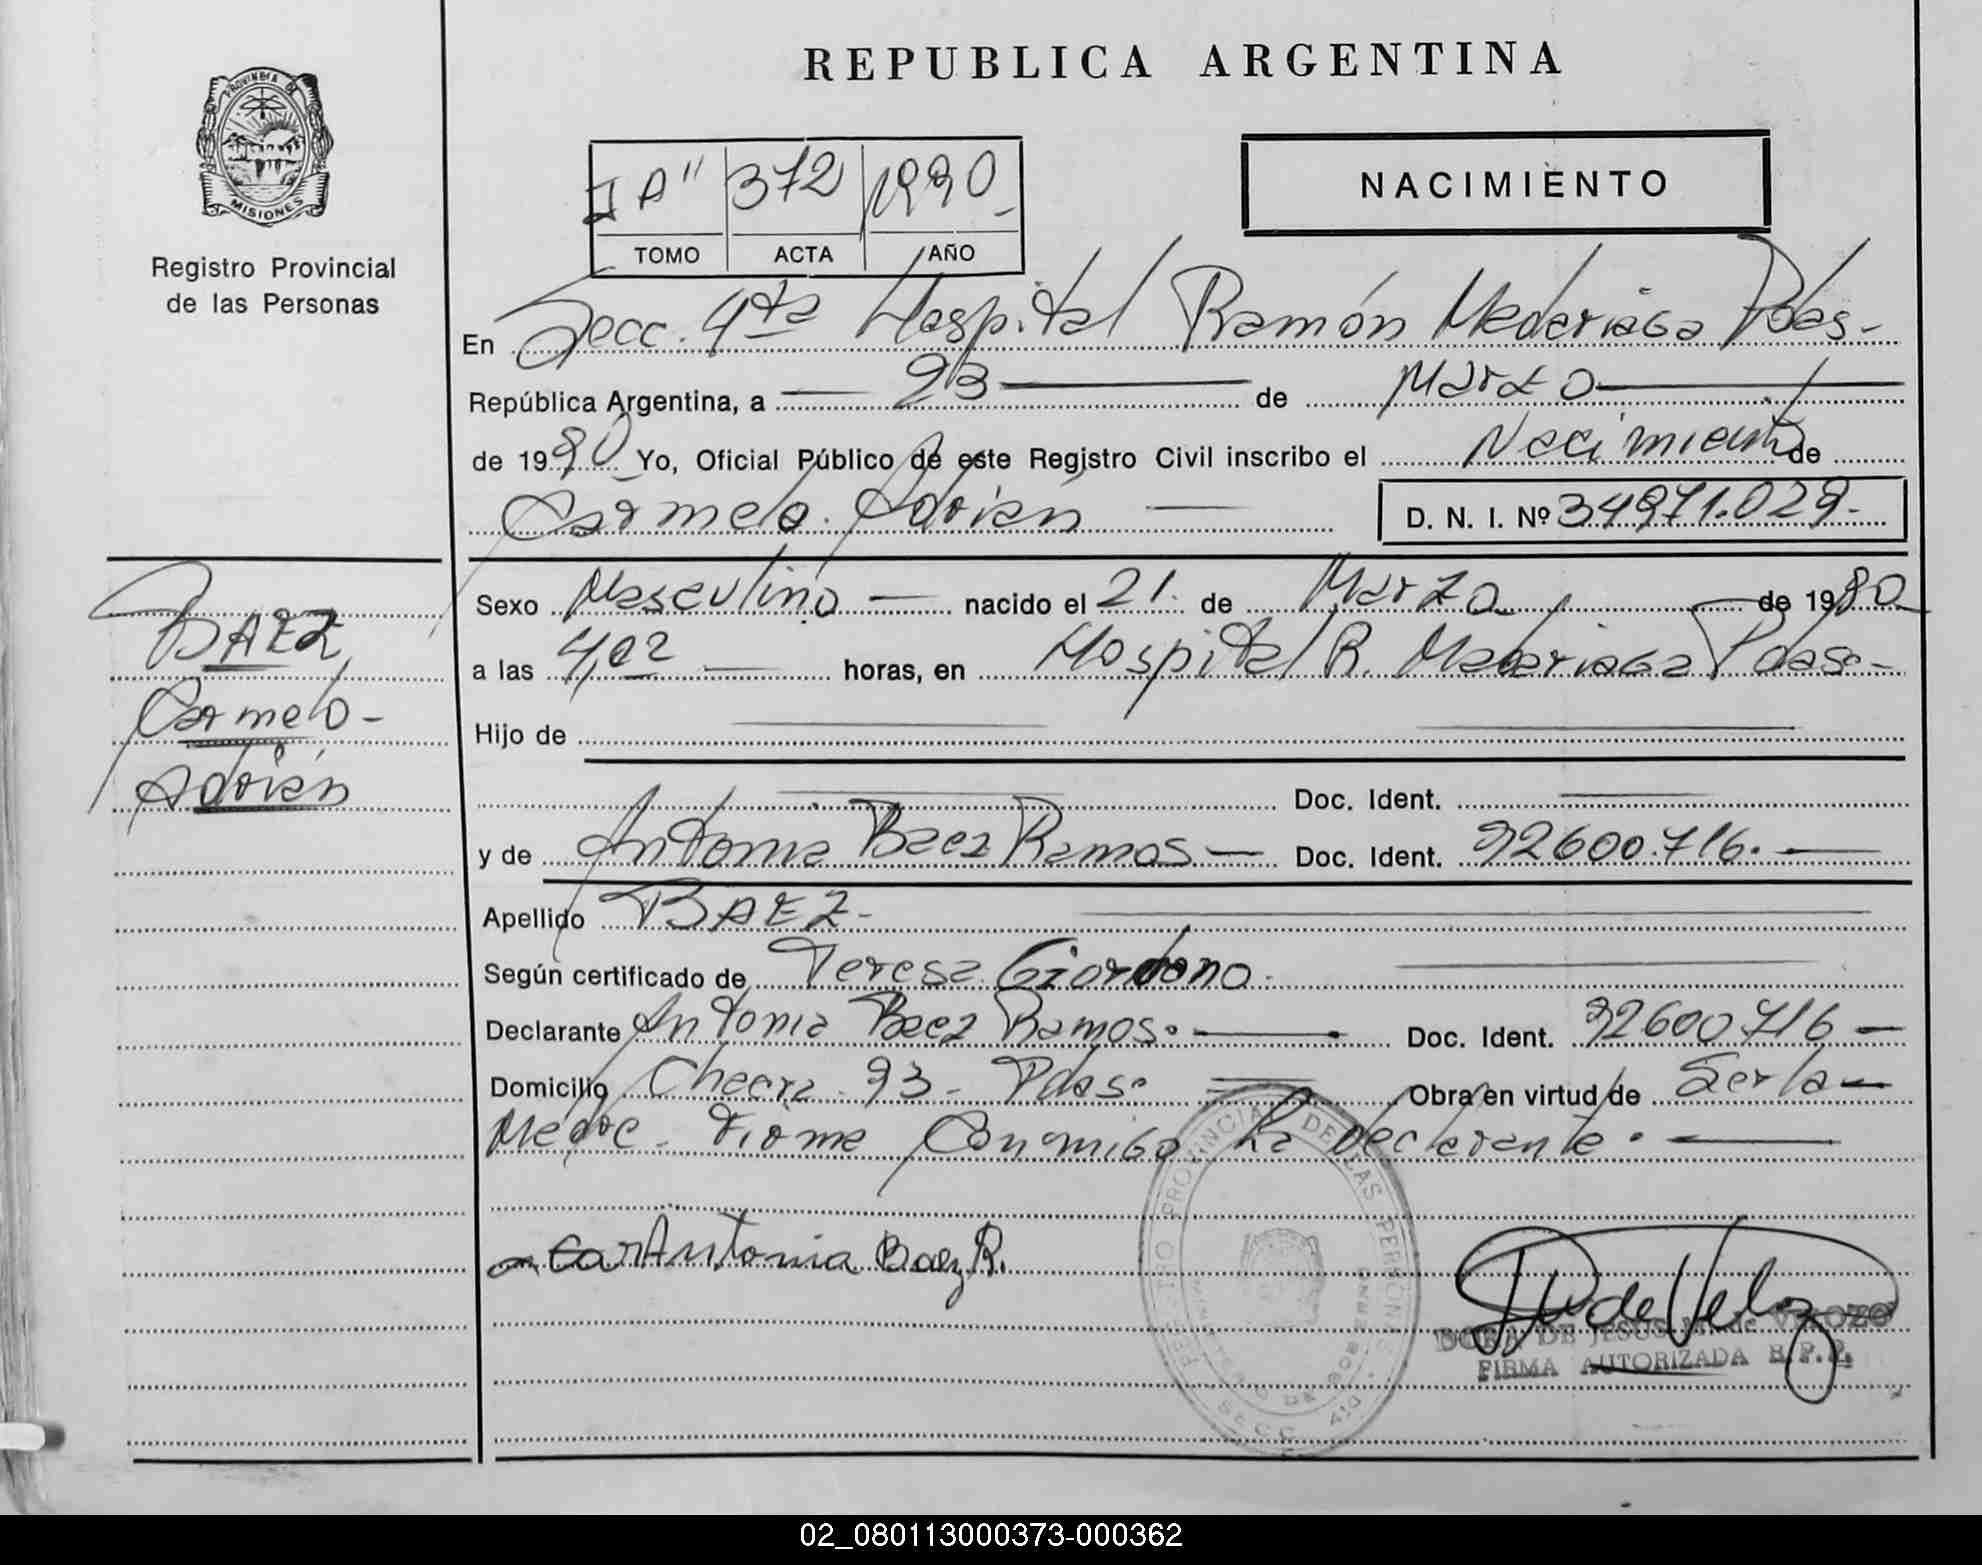 REPUBLICA ARGENTINA
PROVINCIA DE
MISIONES
Registro Provincial
de las Personas
I "A" 372 1990
TOMO ACTA AÑO
NACIMIENTO
En Secc. 4ta Hospital Ramón Madariaga Pdas-
República Argentina, a 23 de Marzo
de 1990 Yo, Oficial Público de este Registro Civil inscribo el Nacimiento de
Carmelo Adrián D. N. I. Nº 34971.029-
Sexo Masculino nacido el 21 de Marzo de 1990
a las 4,02 horas, en Hospital R. Madariaga Pdas-
Hijo de
Doc. Ident.
y de Antonia Baez Ramos Doc. Ident. 92600.716.
Apellido BAEZ-
Según certificado de Teresa Giordano.
Declarante Antonia Baez Ramos. Doc. Ident. 92600.716
Domicilio 93- Pdas. Obra en virtud de Ser la
Madre. Firma Conmigo La Declarante.
BAEZ
Carmelo-
Adrián
Antonia Baez R.
REGISTRO PROVINCIAL DE LAS PERSONAS
MINISTERIO DE GOBIERNO
SECC. 4ta
DORA DE JESUS M. de VELOZO
FIRMA AUTORIZADA R.P.P.
02_080113000373-000362